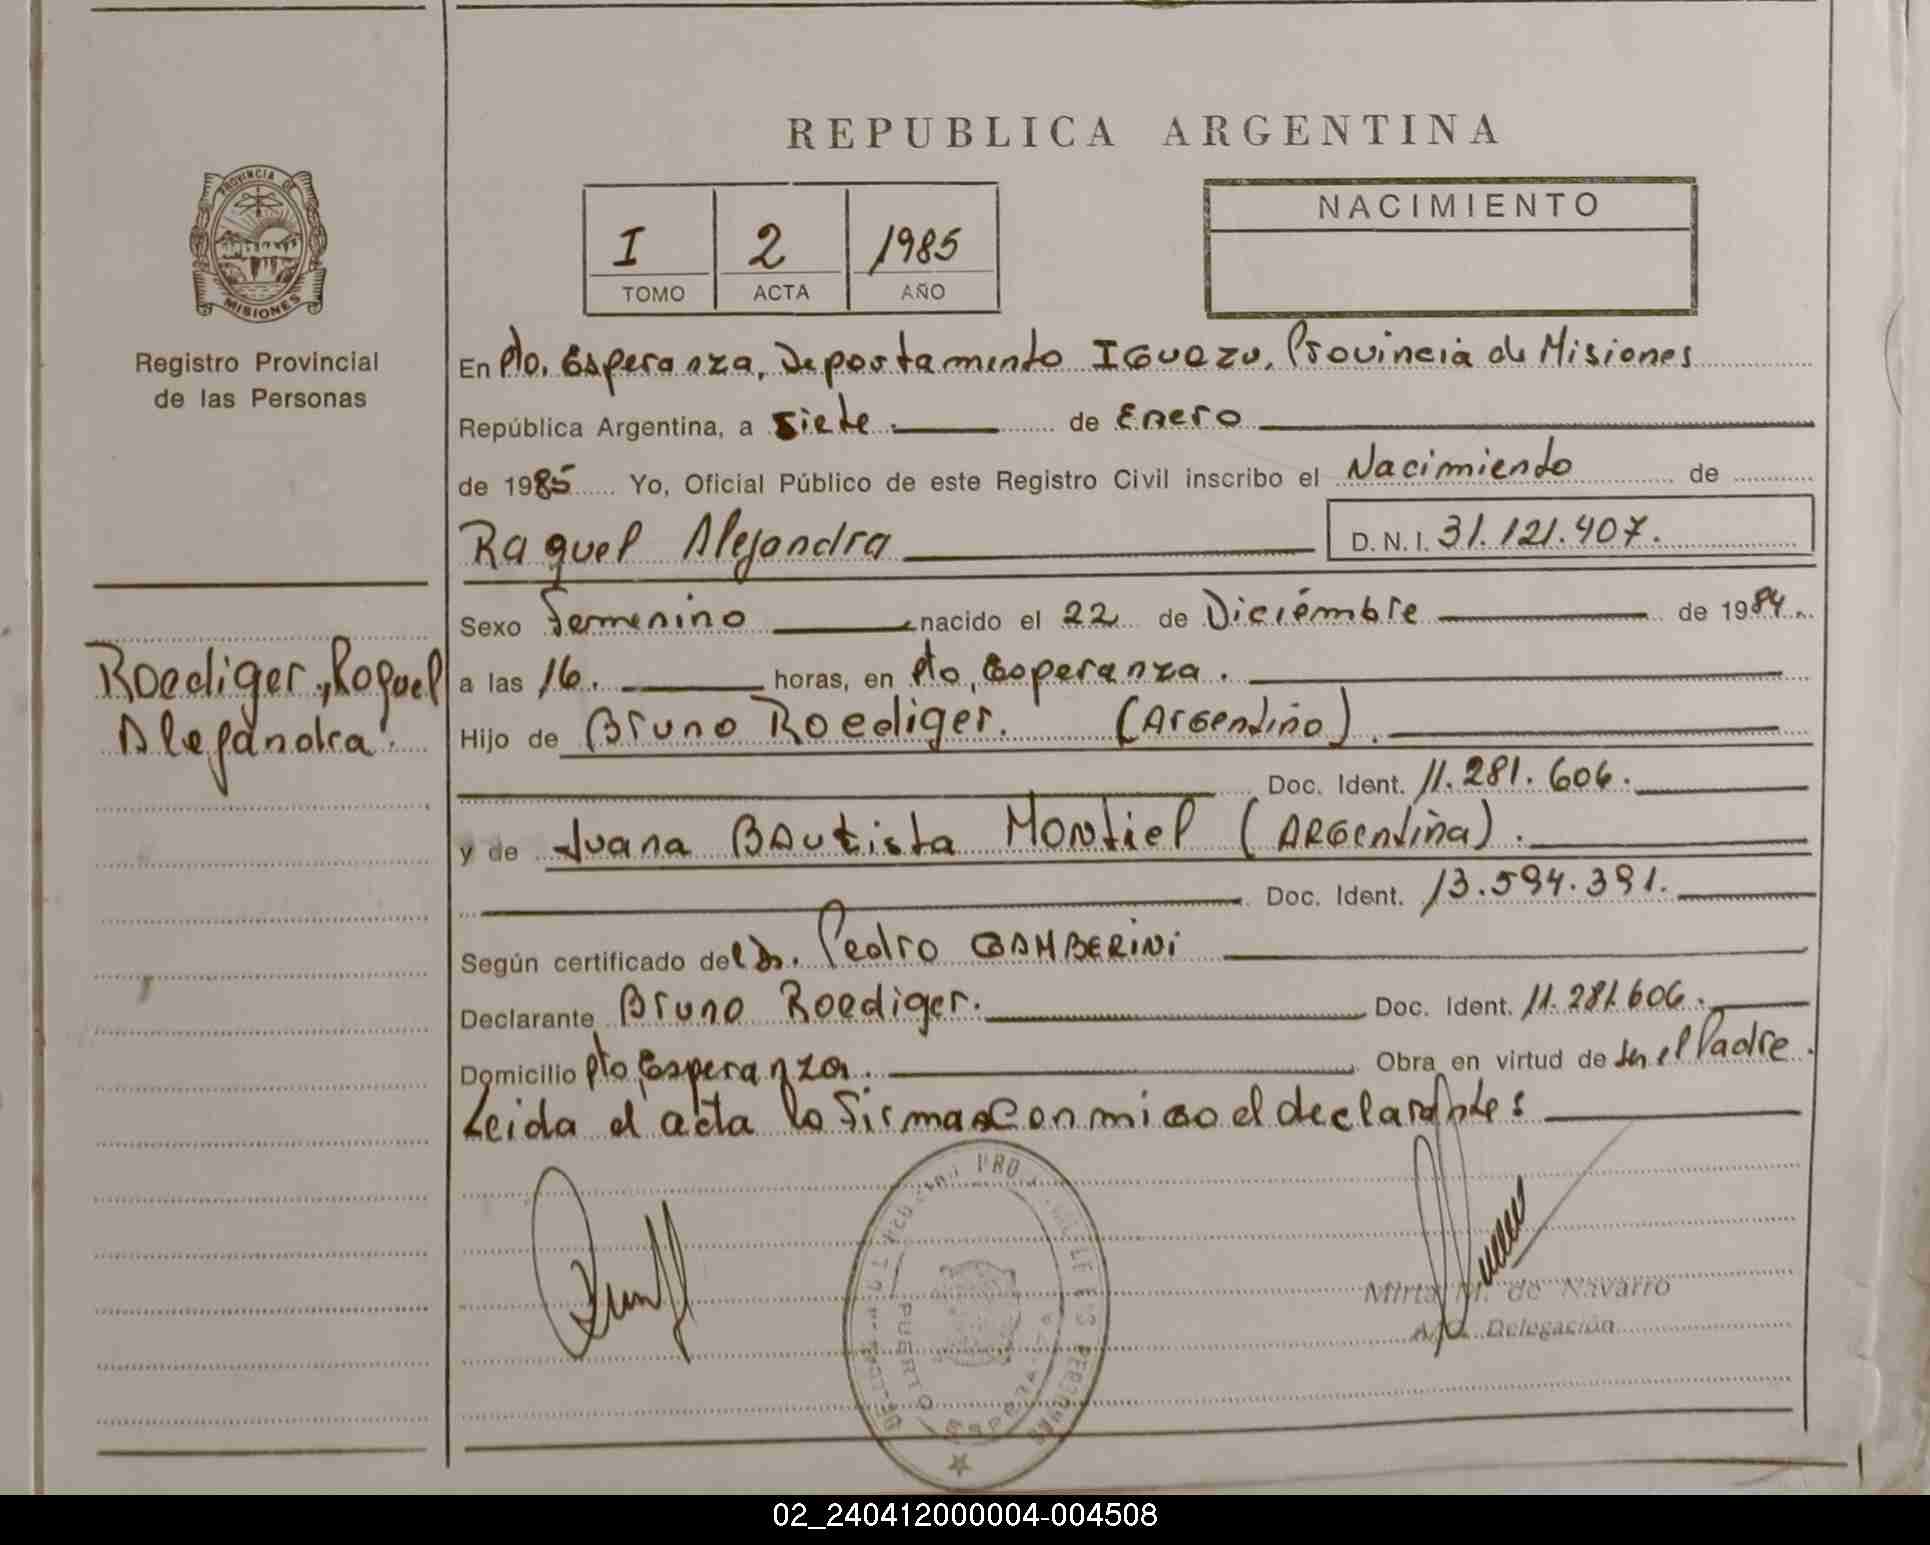 REPUBLICA ARGENTINA
PROVINCIA DE
MISIONES
Registro Provincial
de las Personas
I 2 1985
TOMO ACTA AÑO
NACIMIENTO
En Pto. Esperanza, Departamento IGUAZU, Provincia de Misiones
República Argentina, a siete de Enero
de 1985 Yo, Oficial Público de este Registro Civil inscribo el Nacimiento de
Raquel Alejandra D.N.I. 31.121.407.
Roediger, Raquel
Alejandra.
Sexo Femenino nacido el 22 de Diciembre de 1984.
a las 16. horas, en Pto, Esperanza.
Hijo de Bruno Roediger. (Argentino).
Doc. Ident. 11.281.606.
y de Juana BAutista Montiel (ARGentina).
Doc. Ident. 13.594.391.
Según certificado del Dr. Pedro GAMBERINI
Declarante Bruno Roediger. Doc. Ident. 11.281.606.
Domicilio Pto Esperanza. Obra en virtud de ser el Padre.
Leida el acta la firma conmigo el declarante:
PUERTO
Mirta M. de Navarro
A/C. Delegación
02_240412000004-004508